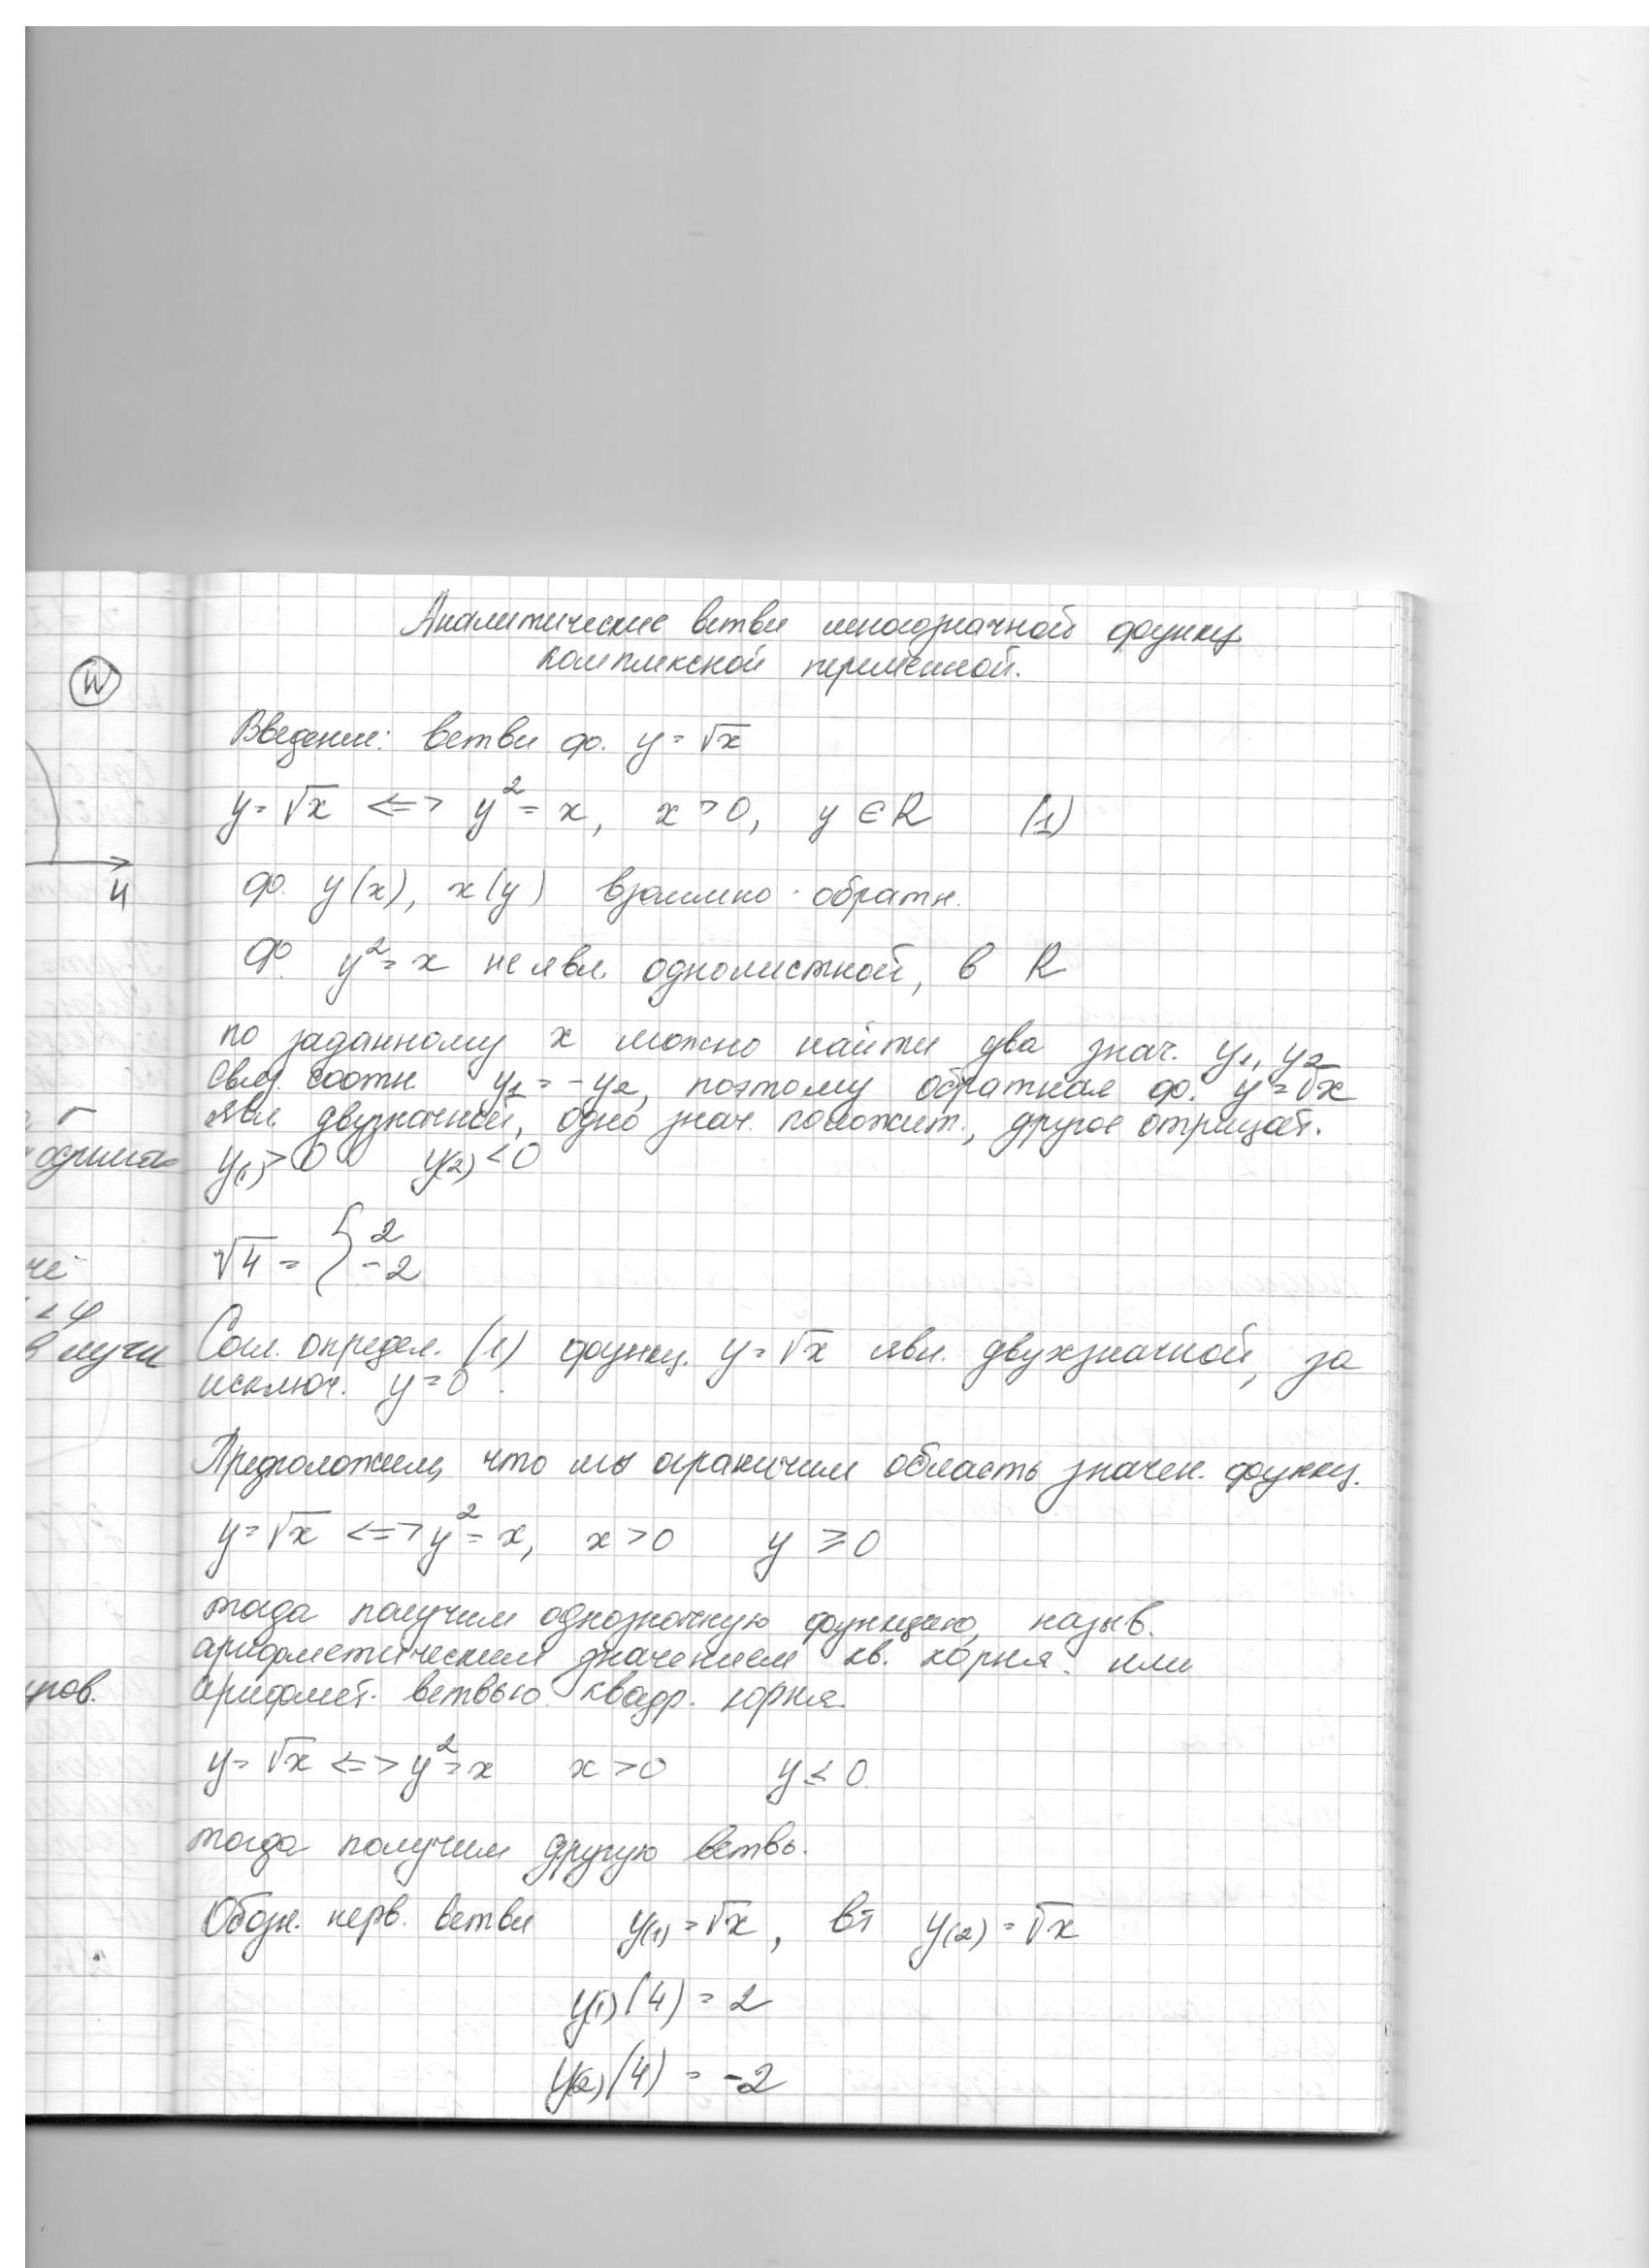 Аналитические ветви многозначной функц.
комплексной переменной.
Введение: ветви ф. y = √x
y = √x <=> y² = x, x > 0, y ∈ R (1)
ф. y(x), x(y) взаимно-обратн.
Ф. y² = x не явл. однолистной, в R
по заданному x можно найти два знач. y₁, y₂
соотн y₁ = -y₂, поэтому обратная ф. y = √x
явл. двузначной, одно знач. положит., другое отрицат.
y(1) > 0 y(2) < 0
√4 = { 2
-2
Согл. определ. (1) функц. y = √x явл. двухзначной, за
исключ. y = 0.
Предположим, что мы ограничим область значен. функц.
y = √x <=> y² = x, x > 0 y ≥ 0
тогда получим однозначную функцию, назыв.
арифметическим значением кв. корня. или
арифмет. ветвью квадр. корня.
y = √x <=> y² = x x > 0 y ≤ 0.
тогда получим другую ветвь.
Обозн. перв. ветви y(1) = √x, вт y(2) = √x
y(1)(4) = 2
y(2)(4) = -2
W
ч
че
< φ
в лучи
ров.